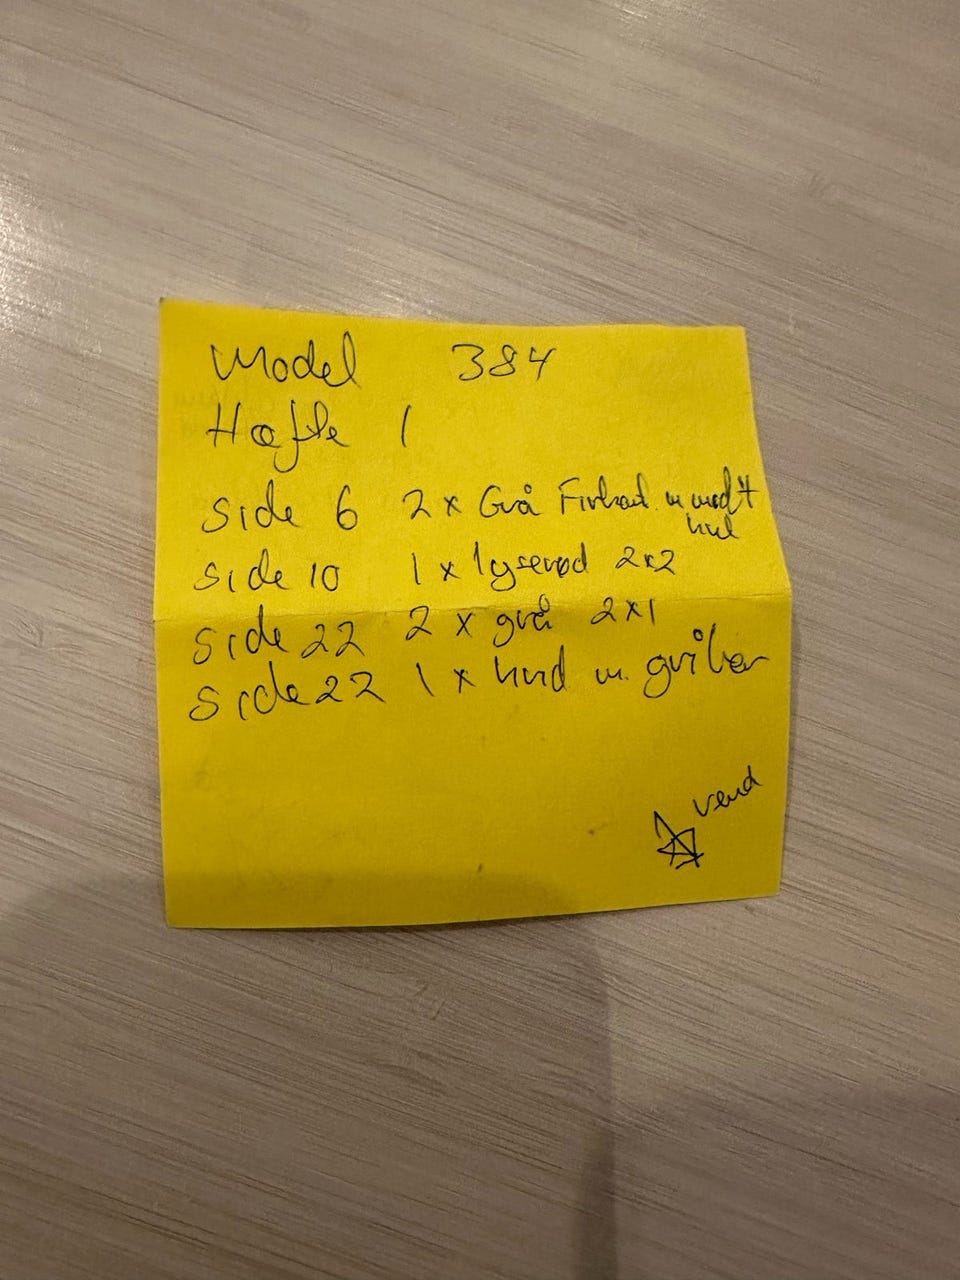 Model 384
Hæfte 1
Side 6 2 x Grå Firkant m midt
hul
Side 10 1 x lyserød 2x2
Side 22 2 x grå 2x1
Side 22 1 x hvid m.
vend